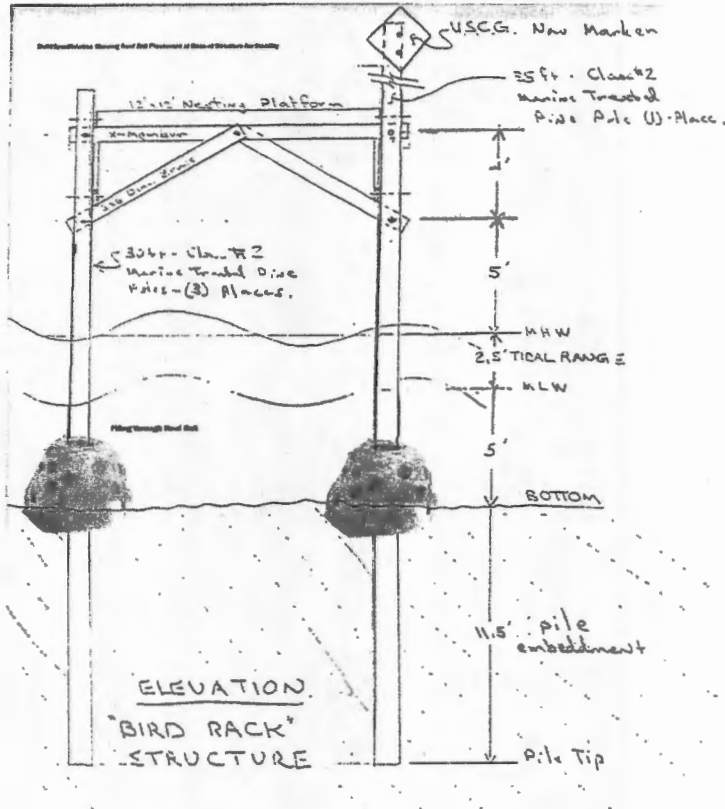 U.S.C.G. Nav Marker
35 ft - Class #2
Marine Treated
Pine Pole (1)-Place.
12'x12' Nesting Platform
X-Member
5'
30 ft - Class #2
Marine Treated Pine
Poles - (3) Places.
MHW
2.5' TIDAL RANGE
MLW
Piling through Reef Ball
5'
BOTTOM
11.5' pile
embeddment
ELEVATION
"BIRD RACK"
STRUCTURE
Pile Tip